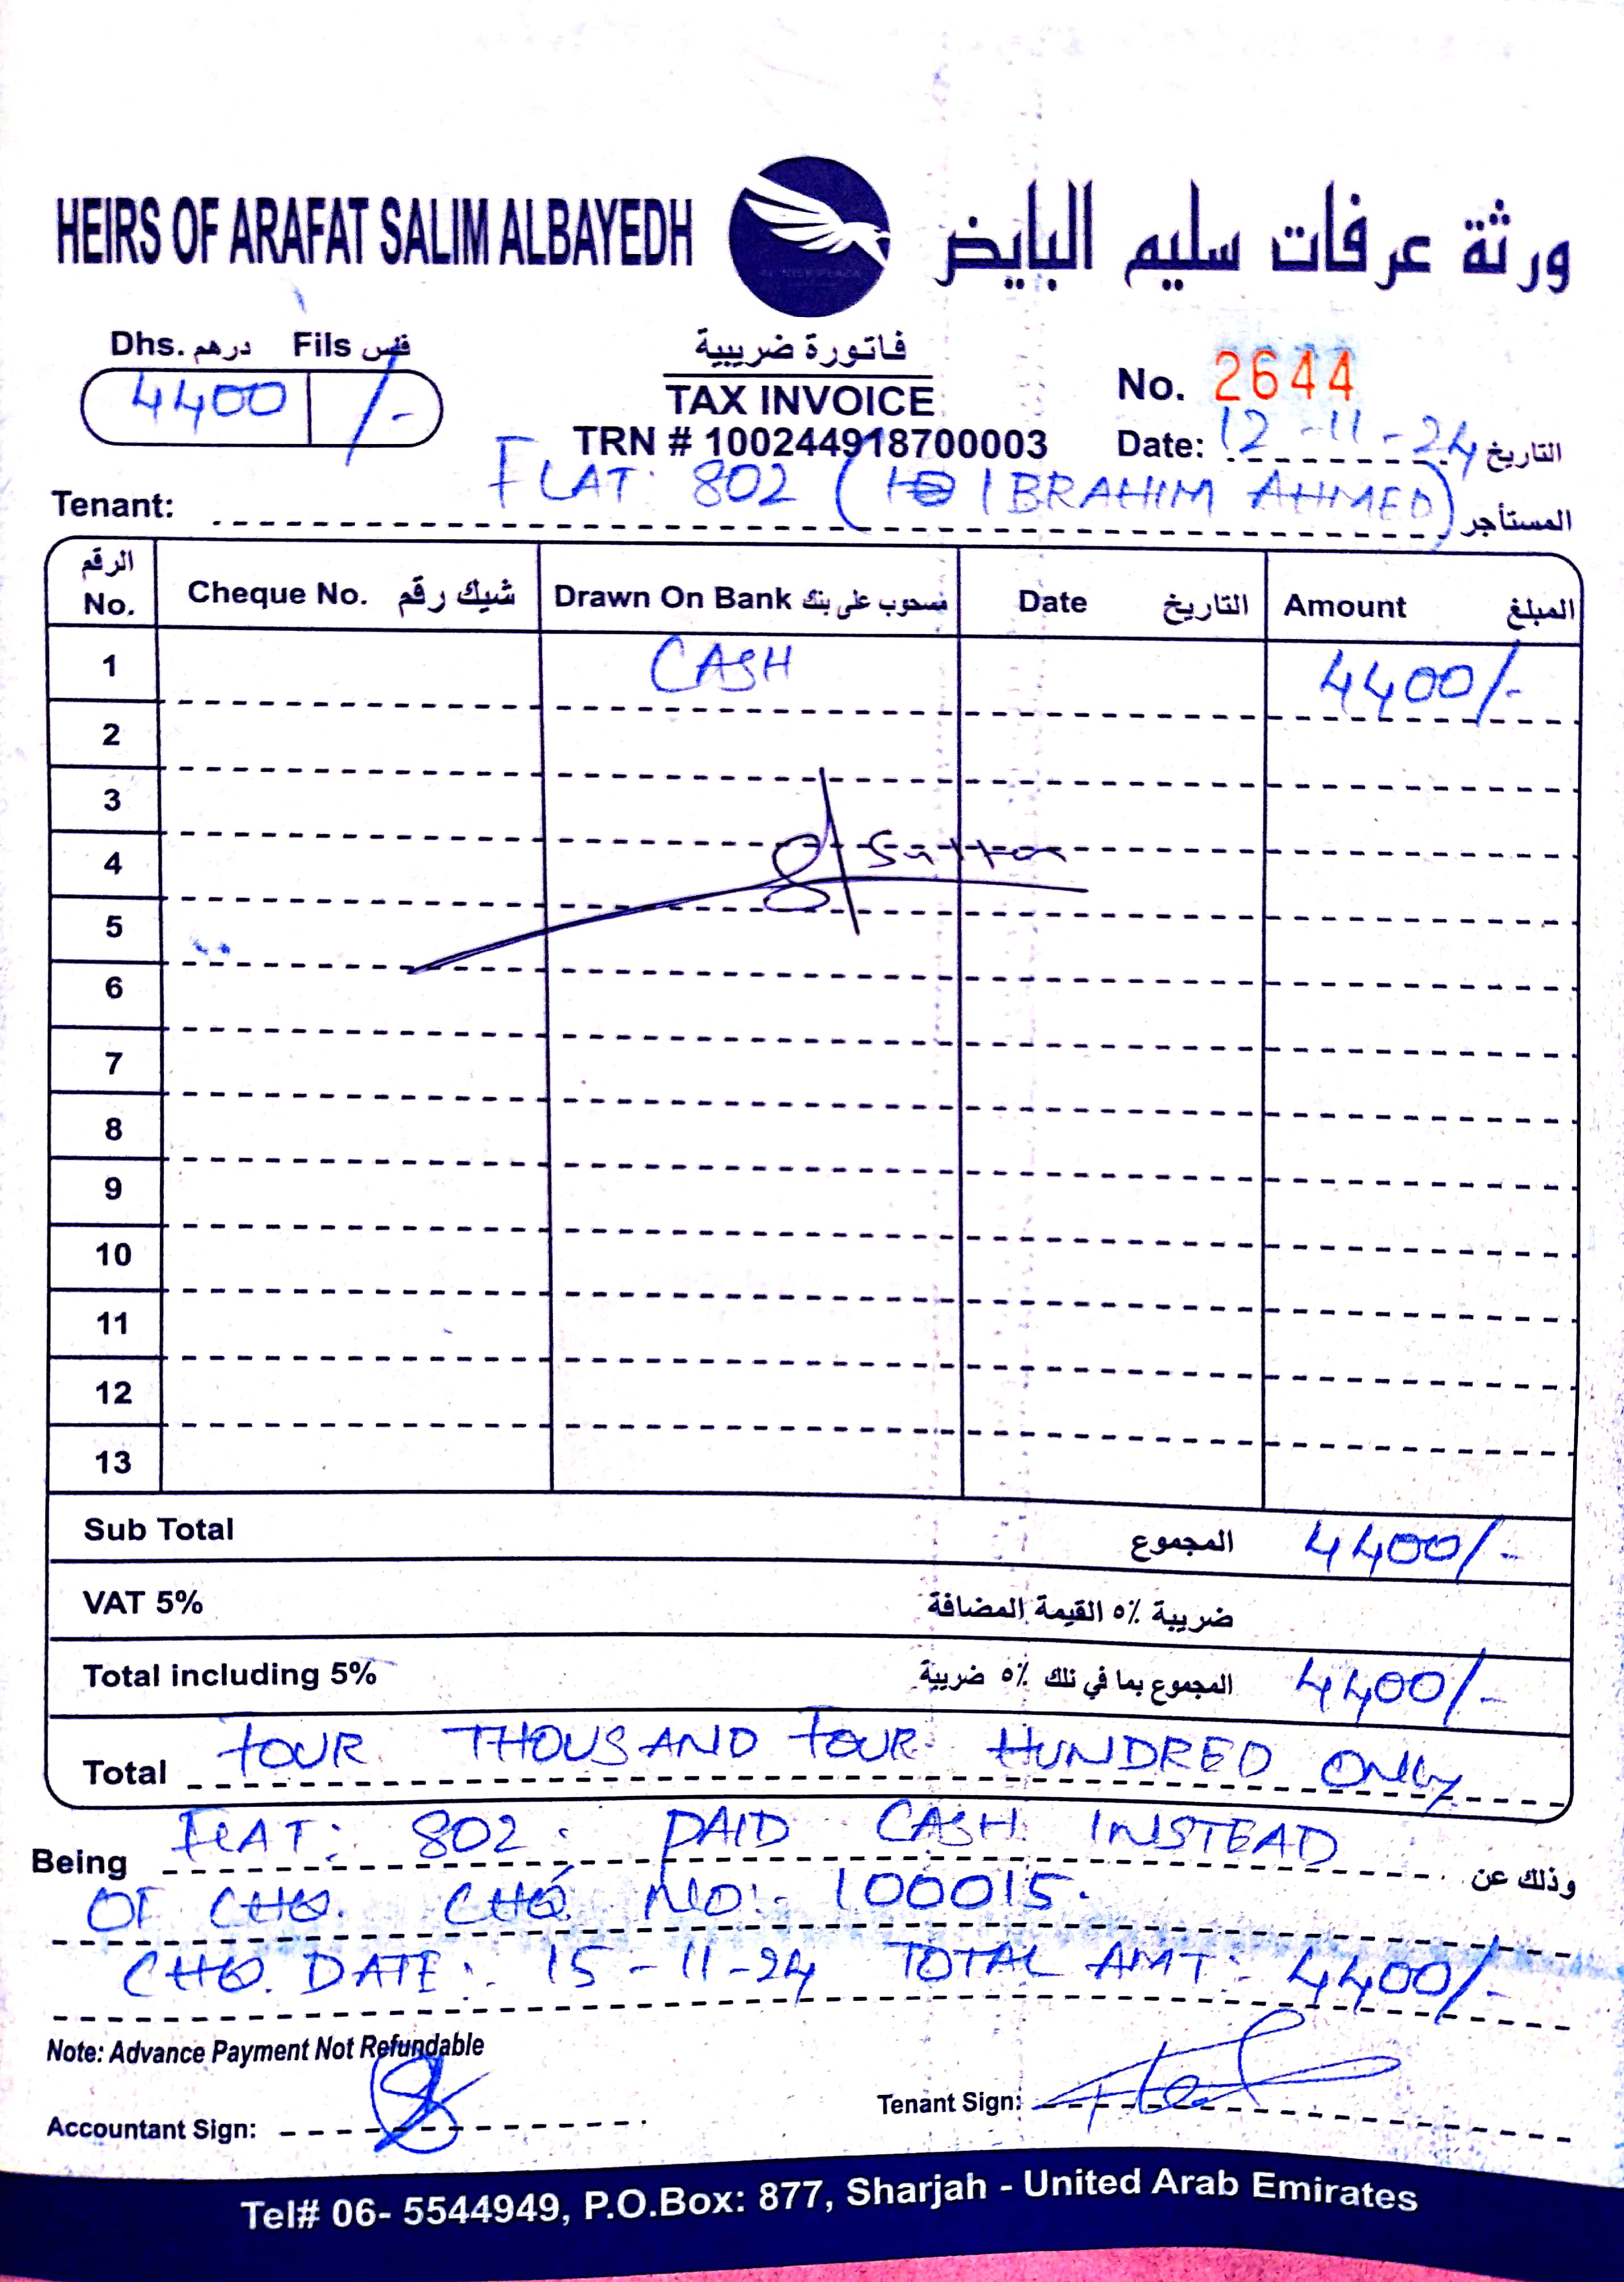 HEIRS OF ARAFAT SALIM ALBAYEDH ورثة عرفات سليم البايض
Dhs. درهم Fils فلس
4400 /-
فاتورة ضريبية
TAX INVOICE
TRN # 100244918700003
No. 2644
Date: 12-11-24 التاريخ
Tenant: FLAT: 802 (IBRAHIM AHMED) المستأجر
الرقم No. Cheque No. شيك رقم Drawn On Bank مسحوب على بنك Date التاريخ Amount المبلغ
1 CASH 4400/-
2
3
4
5
6
7
8
9
10
11
12
13
Sub Total المجموع 4400/-
VAT 5% ضريبة ٥٪ القيمة المضافة
Total including 5% المجموع بما في ذلك ٥٪ ضريبة 4400/-
Total FOUR THOUSAND FOUR HUNDRED ONLY
Being FLAT: 802. PAID CASH INSTEAD وذلك عن
OF CHQ. CHQ NO:- 100015.
CHQ. DATE: 15-11-24 TOTAL AMT: 4400/-
Note: Advance Payment Not Refundable
Accountant Sign:
Tenant Sign:
Tel# 06- 5544949, P.O.Box: 877, Sharjah - United Arab Emirates